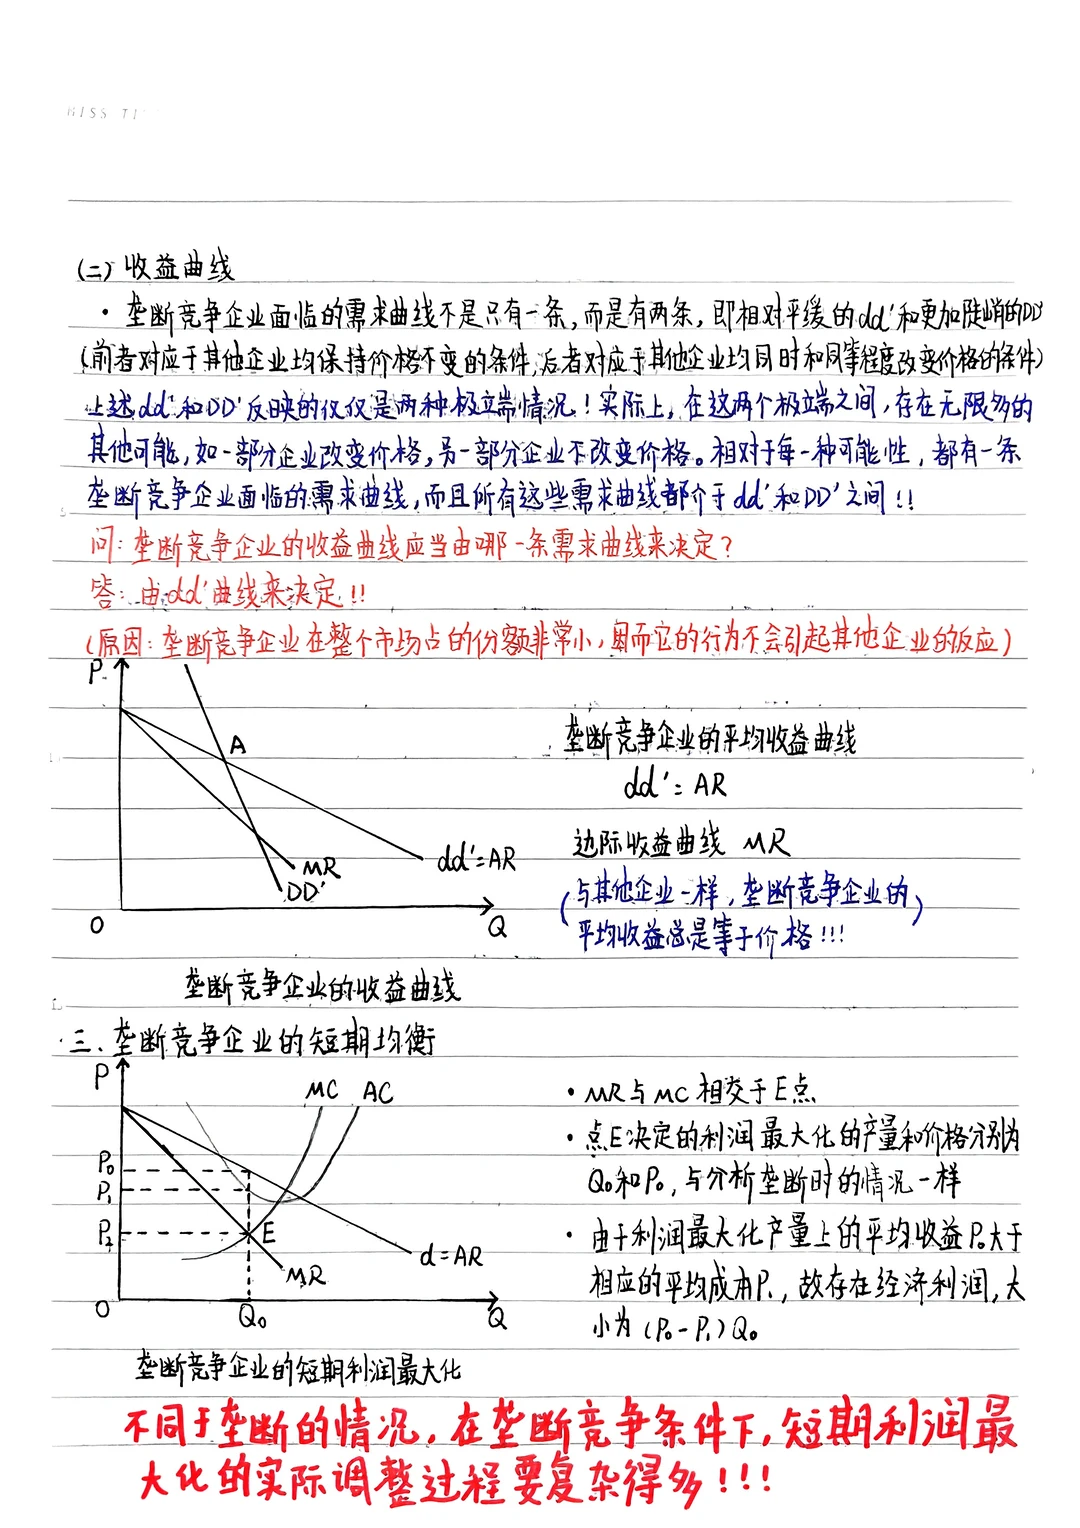 MISS TI
(二) 收益曲线
· 垄断竞争企业面临的需求曲线不是只有一条,而是有两条,即相对平缓的dd'和更加陡峭的DD'
(前者对应于其他企业均保持价格不变的条件,后者对应于其他企业均同时和同等程度改变价格的条件)
上述dd'和DD'反映的仅仅是两种极端情况!实际上,在这两个极端之间,存在无限多的
其他可能,如一部分企业改变价格,另一部分企业不改变价格。相对于每一种可能性,都有一条
垄断竞争企业面临的需求曲线,而且所有这些需求曲线都介于dd'和DD'之间!!
问:垄断竞争企业的收益曲线应当由哪一条需求曲线来决定?
答:由dd'曲线来决定!!
(原因:垄断竞争企业在整个市场占的份额非常小,因而它的行为不会引起其他企业的反应)
P
A
MR
DD'
dd'=AR
O
Q
垄断竞争企业的收益曲线
垄断竞争企业的平均收益曲线
dd'=AR
边际收益曲线 MR
(与其他企业一样,垄断竞争企业的
平均收益总是等于价格!!!)
三、垄断竞争企业的短期均衡
P
MC AC
P₀
P₁
P₂
E
d=AR
MR
O
Q₀
Q
垄断竞争企业的短期利润最大化
· MR与MC相交于E点
· 点E决定的利润最大化的产量和价格分别为
Q₀和P₀,与分析垄断时的情况一样
· 由于利润最大化产量上的平均收益P₀大于
相应的平均成本P₁,故存在经济利润,大
小为(P₀-P₁)Q₀
不同于垄断的情况,在垄断竞争条件下,短期利润最
大化的实际调整过程要复杂得多!!!